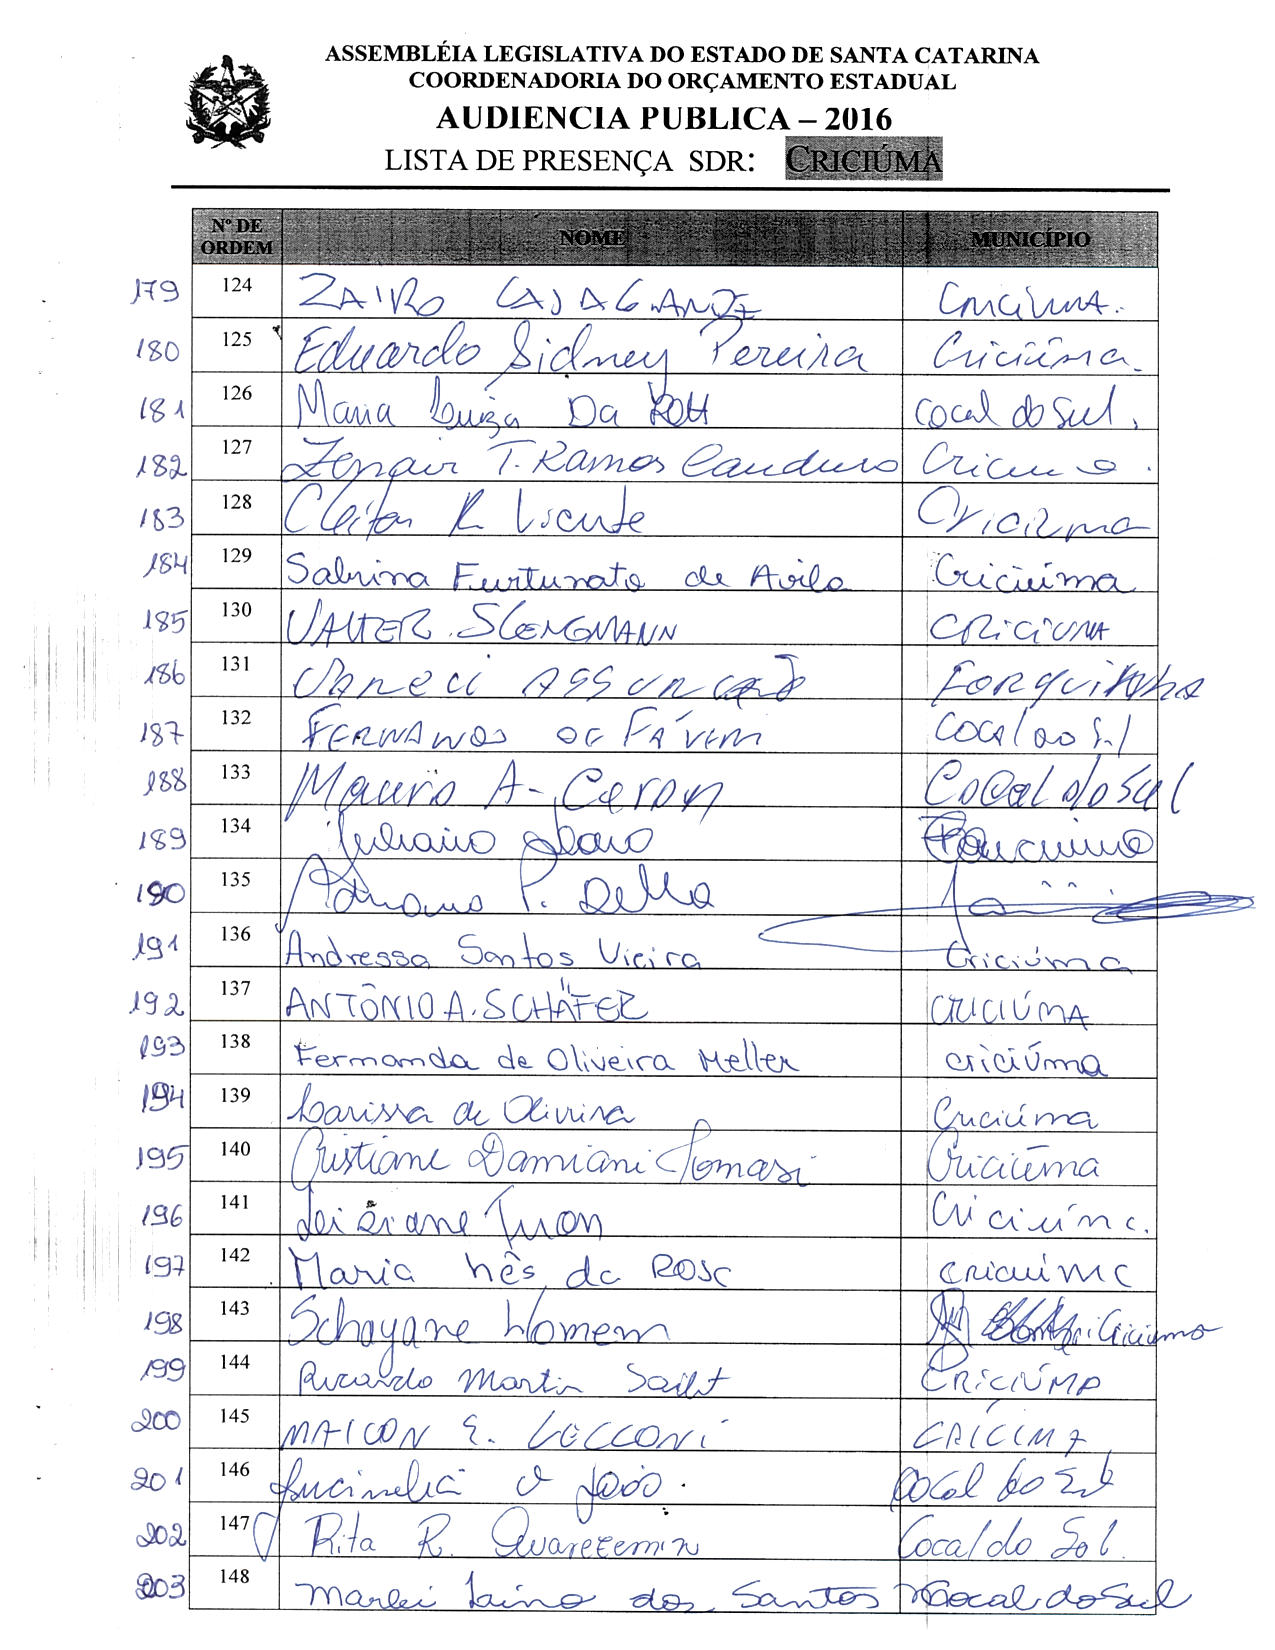 ASSEMBLÉIA LEGISLATIVA DO ESTADO DE SANTA CATARINA
COORDENADORIA DO ORÇAMENTO ESTADUAL
AUDIENCIA PUBLICA – 2016
LISTA DE PRESENÇA SDR: CRICIÚMA
Nº DE ORDEM NOME MUNICÍPIO
179 124 ZAIRO CASAGRANDE Criciuma.
180 125 Eduardo Sidney Pereira Criciúma.
181 126 Maria Luiza Da Cocal do Sul.
182 127 Zenair T. Ramos Canduro Criciuma.
183 128 Cleiton R Vicente Criciuma
184 129 Sabrina Furtunato de Avila Criciúma
185 130 VALTER CRICIUMA
186 131 Vaneci ASSUNÇÃO Forquilhinha
187 132 FERNANDO DE FÁVERI COCAL do Sul
188 133 Mauro A- Ceron COCal do SUL
189 134 Juliano
190 135 Adriano P. Della
191 136 Andressa Santos Vieira Criciúma
192 137 ANTÔNIO A. SCHÄFER CRICIÚMA
193 138 Fernanda de Oliveira Meller criciúma
194 139 Larissa de Oliveira Criciúma
195 140 Cristiane Damiani Tomasi Criciúma
196 141 Leiziane Tuon Criciúma.
197 142 Maria Inês da Rosa criciúma
198 143 Schayane Homem Criciuma
199 144 Ricardo Martin CRICIÚMA
200 145 MAICON E. CECCONI CRICIÚMA
201 146 Lucinelia João. Cocal do Sul
202 147 Rita R. Quarezemin Cocal do Sul.
203 148 Marlei dos Santos Cocal do Sul